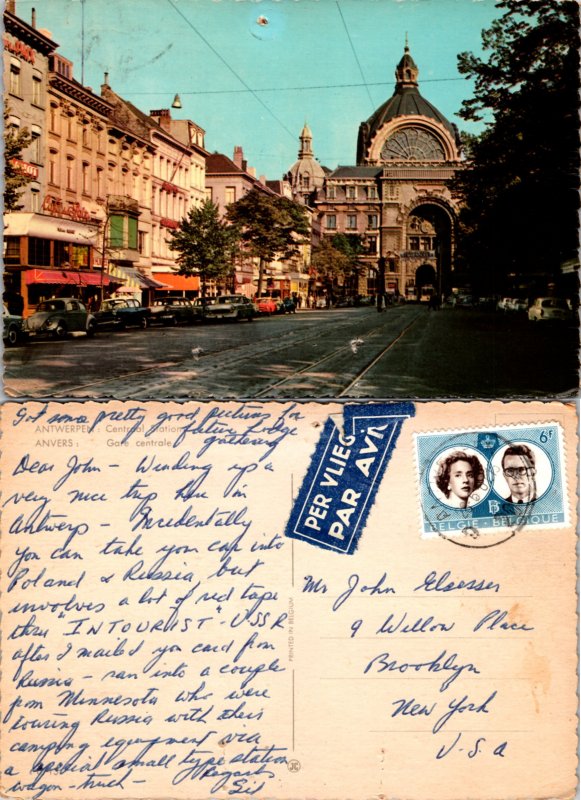 Got some pretty good pictures for
future lodge
gathering
ANTWERPEN : Centraal Station
ANVERS : Gare centrale
Dear John - Winding up a
very nice trip here in
Antwerp - Incredentally
you can take your car into
Poland & Russia but
involves a lot of red tape
thru "INTOURIST" - USSR
after I mailed you card from
Russia - ran into a couple
from Minnesota who were
touring Russia with their
camping equipment via
a special small type station
wagon - truck -
Regards
Sid
PRINTED IN BELGIUM
PER VLIEGTUIG
PAR AVION
6F
BELGIE - BELGIQUE
Mr John Elsesser
9 Willow Place
Brooklyn
New York
U.S.a